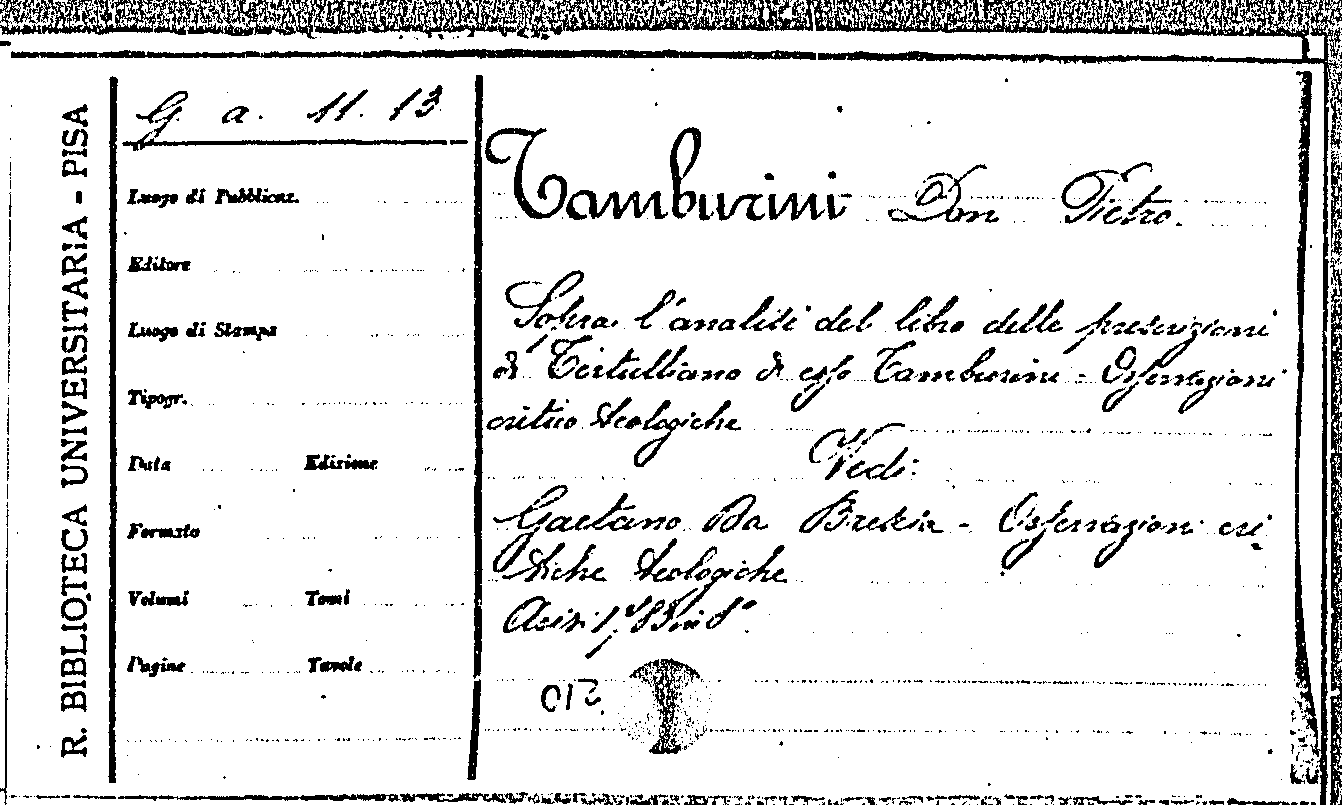 R. BIBLIOTECA UNIVERSITARIA - PISA
G a. 11. 13
Luogo di Pubblicaz.
Editore
Luogo di Stampa
Tipogr.
Data Edizione
Formato
Volumi Tomi
Pagine Tavole
Tamburini Don Pietro.
Sopra l'analisi del libro delle prescrizioni
di Tertulliano di esso Tamburini - Osservazioni
critico teologiche
Vedi:
Gaetano Da Brescia - Osservazioni cri
tiche teologiche
in 8°